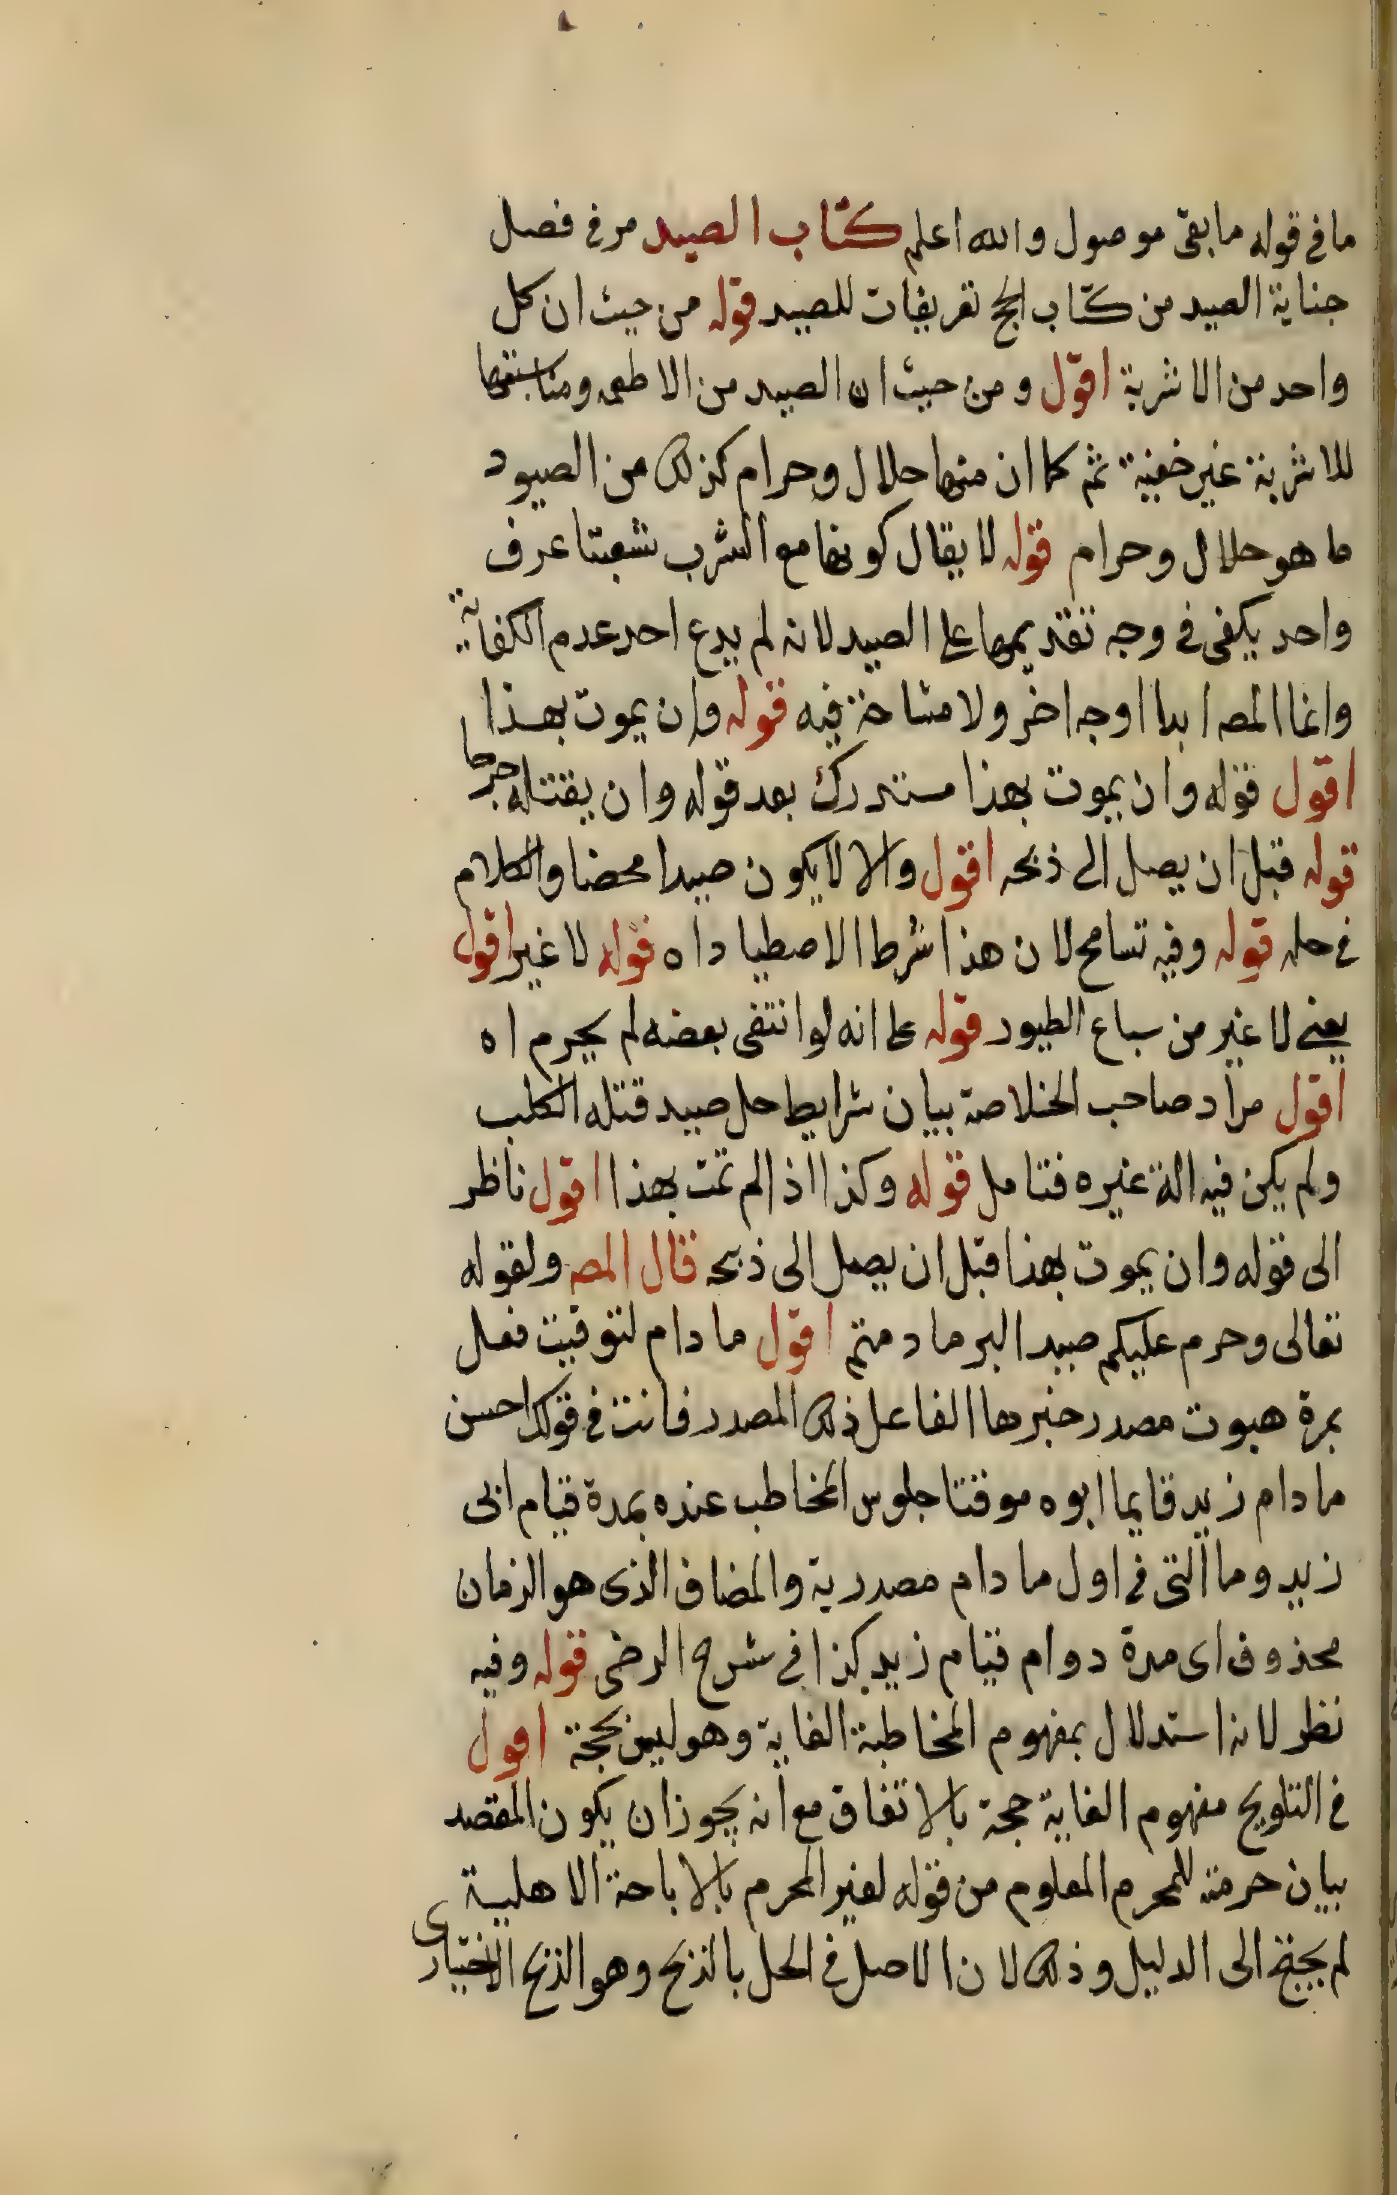 ما في قوله ما بقى موصول والله اعلم كتاب الصيد مر في فصل
جناية الصيد من كتاب الحج تعريفات للصيد قوله من حيث ان كل
واحد من الاشربة اقول ومن حيث ان الصيد من الاطعمه ومناسبتها
للاشربة غير خفية ثم كما ان منها حلال وحرام كذلك من الصيود
ما هو حلال وحرام قوله لا يقال كونها مع الشرب شعبتا عرف
واحد يكفى في وجه تقديمها على الصيد لانه لم يدع احد عدم الكفاية
وانما المصـ ابدا اوجه اخر ولا مشاحة فيه قوله وان يموت بهذا
اقول قوله وان يموت بهذا مستدرك بعد قوله وان يقتله جرحا
قوله قبل ان يصل الى ذبحه اقول والا لا يكون صيدا محضا والكلام
في حله قوله وفيه تسامح لان هذا شرط الاصطياد اه قوله لا غير اقول
يعنى لا غير من سباع الطيور قوله على انه لو انتفى بعضه لم يحرم اه
اقول مراد صاحب الخلاصة بيان شرايط حل صيد قتله الكلب
ولم يكن فيه الة غيره فتامل قوله وكذا اذا لم تمت بهذا اقول ناظر
الى قوله وان يموت بهذا قبل ان يصل الى ذبحه قال المصـ ولقوله
تعالى وحرم عليكم صيد البر ما دمتم اقول ما دام لتوقيت فعل
بمدة ثبوت مصدر خبرها الفاعل ذلك المصدر فانت في قولك احسن
ما دام زيد قايما ابوه موقتا جلوس المخاطب عنده بمدة قيام ابى
زيد وما التى في اول ما دام مصدرية والمضاف الذى هو الزمان
محذوف اى مدة دوام قيام زيد كذا في شرح الرضى قوله وفيه
نظر لانه استدلال بمفهوم المخاطبة الغاية وهو ليس بحجة اقول
في التلويح مفهوم الغاية حجة بالاتفاق مع انه يجوز ان يكون المقصد
بيان حرمته للمحرم المعلوم من قوله لغير المحرم بالاباحة الاهلية
لم يحتج الى الدليل وذلك لان الاصل في الحل بالذبح وهو الذبح الاختيارى